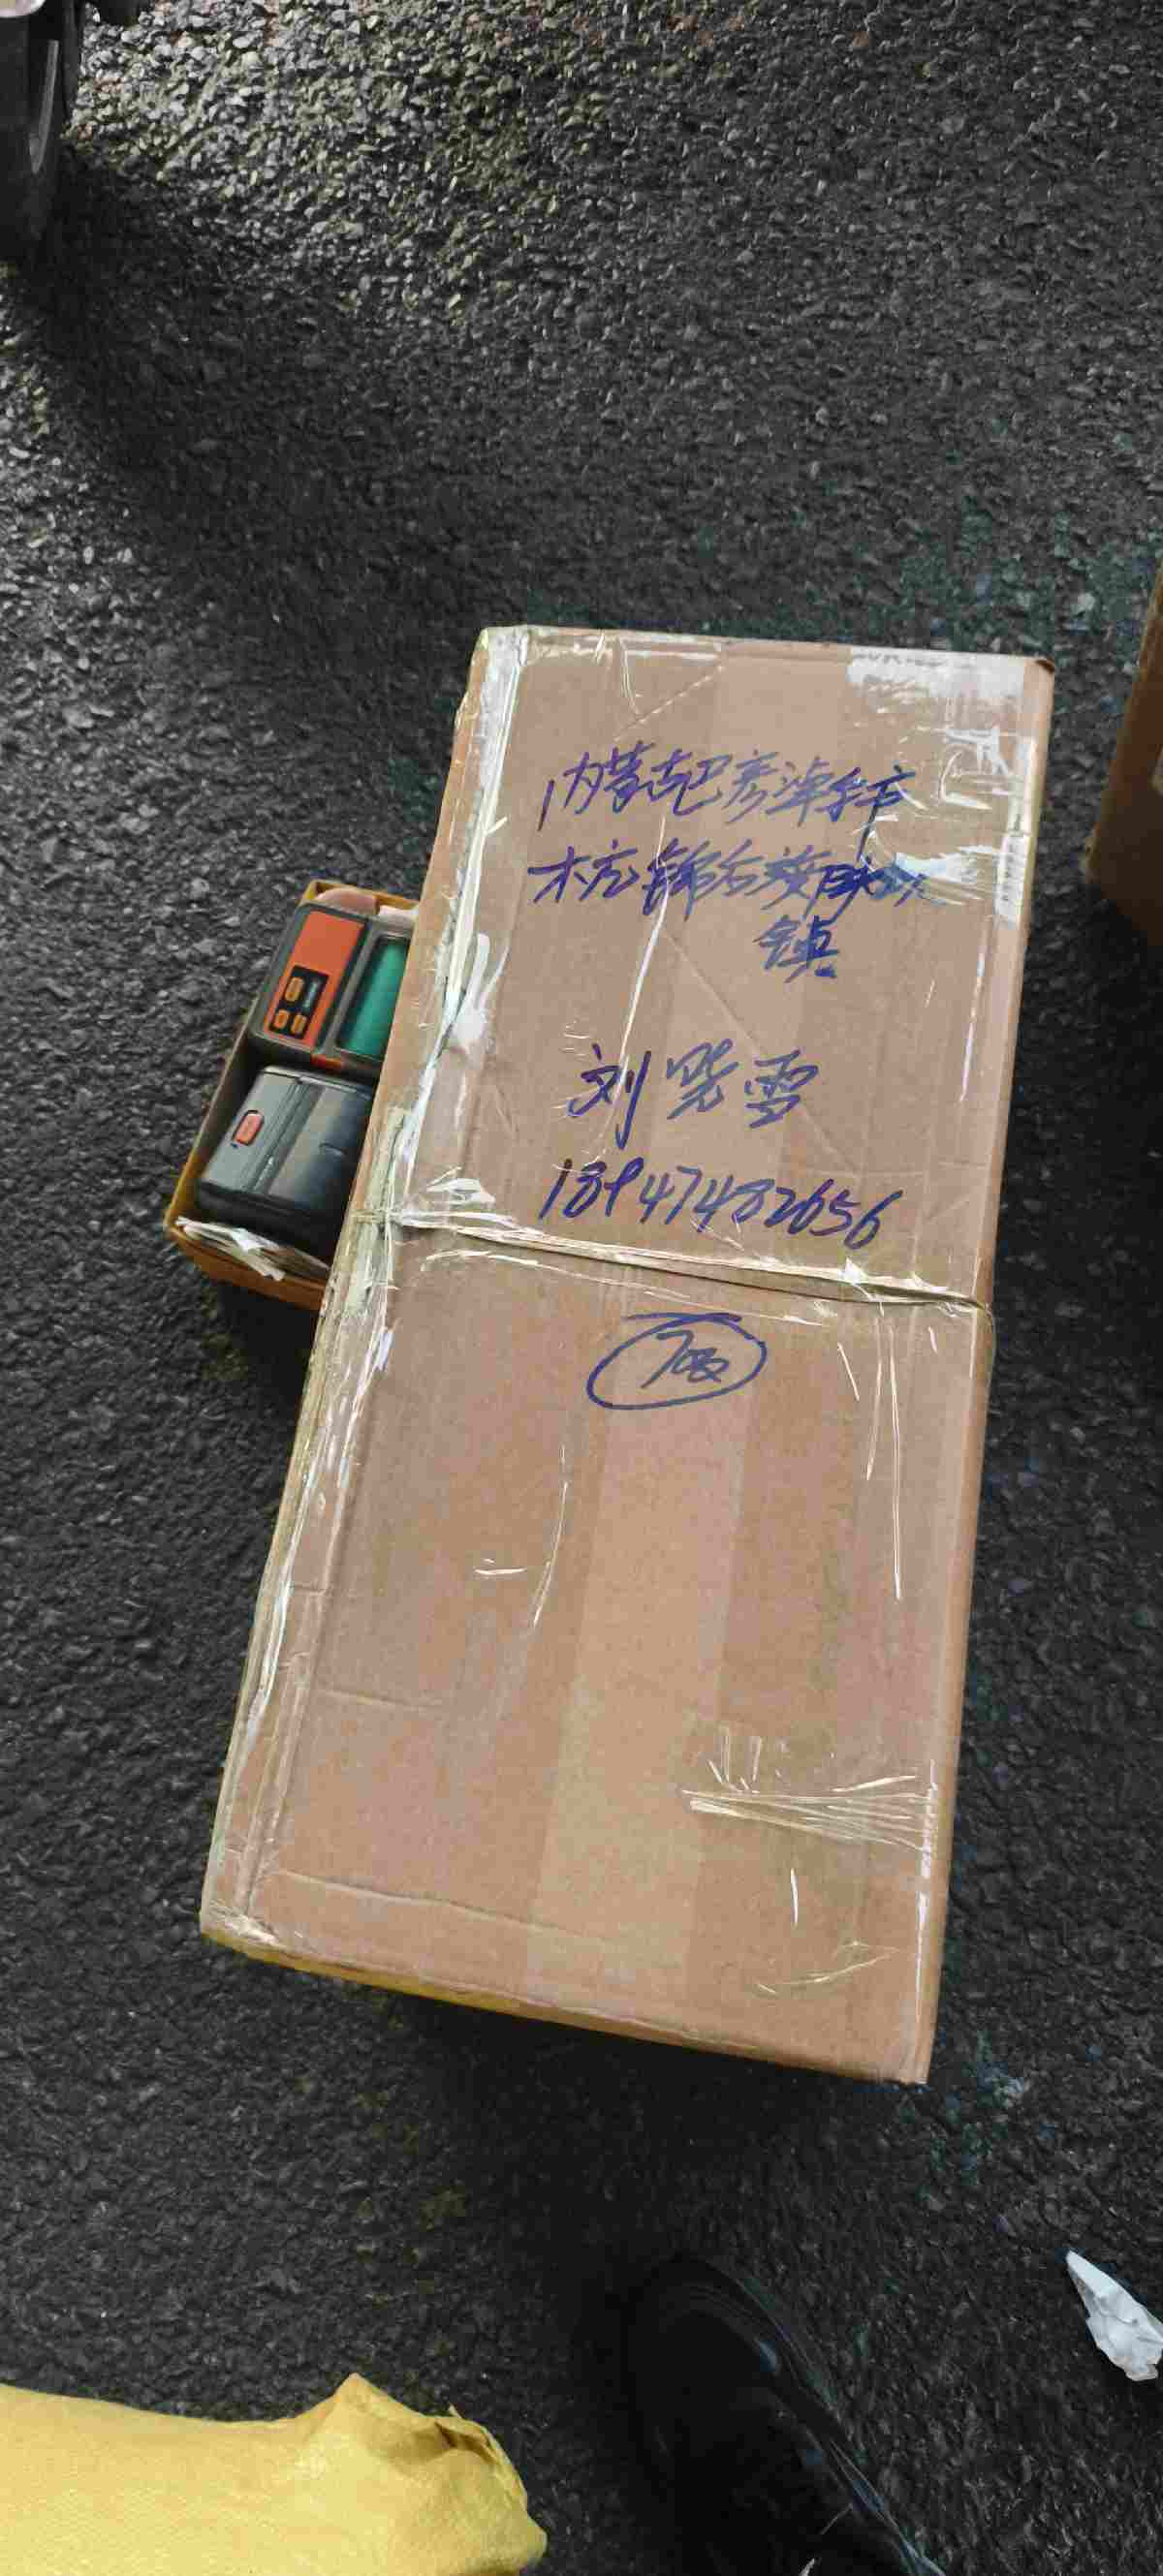 内蒙古巴彦淖尔市
杭锦后旗陕坝
镇
刘晓雪
18947482656